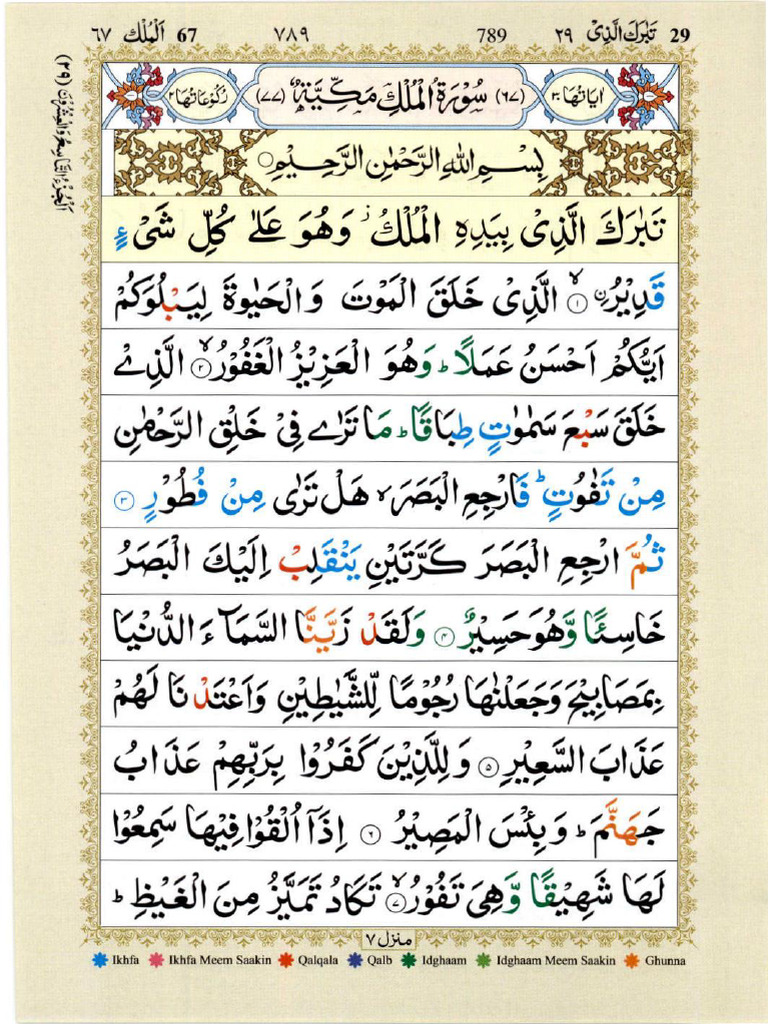 29 تَبٰرَكَ الَّذِیْ ۲۹ 789 ۷۸۹ 67 اَلْمُلْك ۶۷
اٰیَاتُهَا ۳۰ (۶۷) سُوْرَةُ الْمُلْكِ مَكِّیَّةٌ (۷۷) رُكُوْعَاتُهَا ۲
اَلْجُزْءُ التَّاسِعُ وَالْعِشْرُوْنَ (۲۹)
بِسْمِ اللهِ الرَّحْمٰنِ الرَّحِیْمِ
تَبٰرَكَ الَّذِیْ بِیَدِهِ الْمُلْكُ ز وَهُوَ عَلٰى كُلِّ شَیْءٍ
قَدِیْرُ ۙ۝۱ الَّذِیْ خَلَقَ الْمَوْتَ وَالْحَیٰوةَ لِیَبْلُوَكُمْ
اَیُّكُمْ اَحْسَنُ عَمَلًا ؕ وَهُوَ الْعَزِیْزُ الْغَفُوْرُ ۙ۝۲ الَّذِیْ
خَلَقَ سَبْعَ سَمٰوٰتٍ طِبَاقًا ؕ مَا تَرٰى فِیْ خَلْقِ الرَّحْمٰنِ
مِنْ تَفٰوُتٍ ؕ فَارْجِعِ الْبَصَرَ ۙ هَلْ تَرٰى مِنْ فُطُوْرٍ ۝۳
ثُمَّ ارْجِعِ الْبَصَرَ كَرَّتَیْنِ یَنْقَلِبْ اِلَیْكَ الْبَصَرُ
خَاسِئًا وَّهُوَ حَسِیْرٌ ۝۴ وَلَقَدْ زَیَّنَّا السَّمَآءَ الدُّنْیَا
بِمَصَابِیْحَ وَجَعَلْنٰهَا رُجُوْمًا لِّلشَّیٰطِیْنِ وَاَعْتَدْنَا لَهُمْ
عَذَابَ السَّعِیْرِ ۝۵ وَلِلَّذِیْنَ كَفَرُوْا بِرَبِّهِمْ عَذَابُ
جَهَنَّمَ ؕ وَبِئْسَ الْمَصِیْرُ ۝۶ اِذَآ اُلْقُوْا فِیْهَا سَمِعُوْا
لَهَا شَهِیْقًا وَّهِیَ تَفُوْرُ ۙ۝۷ تَكَادُ تَمَیَّزُ مِنَ الْغَیْظِ ؕ
منزل ۷
Ikhfa Ikhfa Meem Saakin Qalqala Qalb Idghaam Idghaam Meem Saakin Ghunna